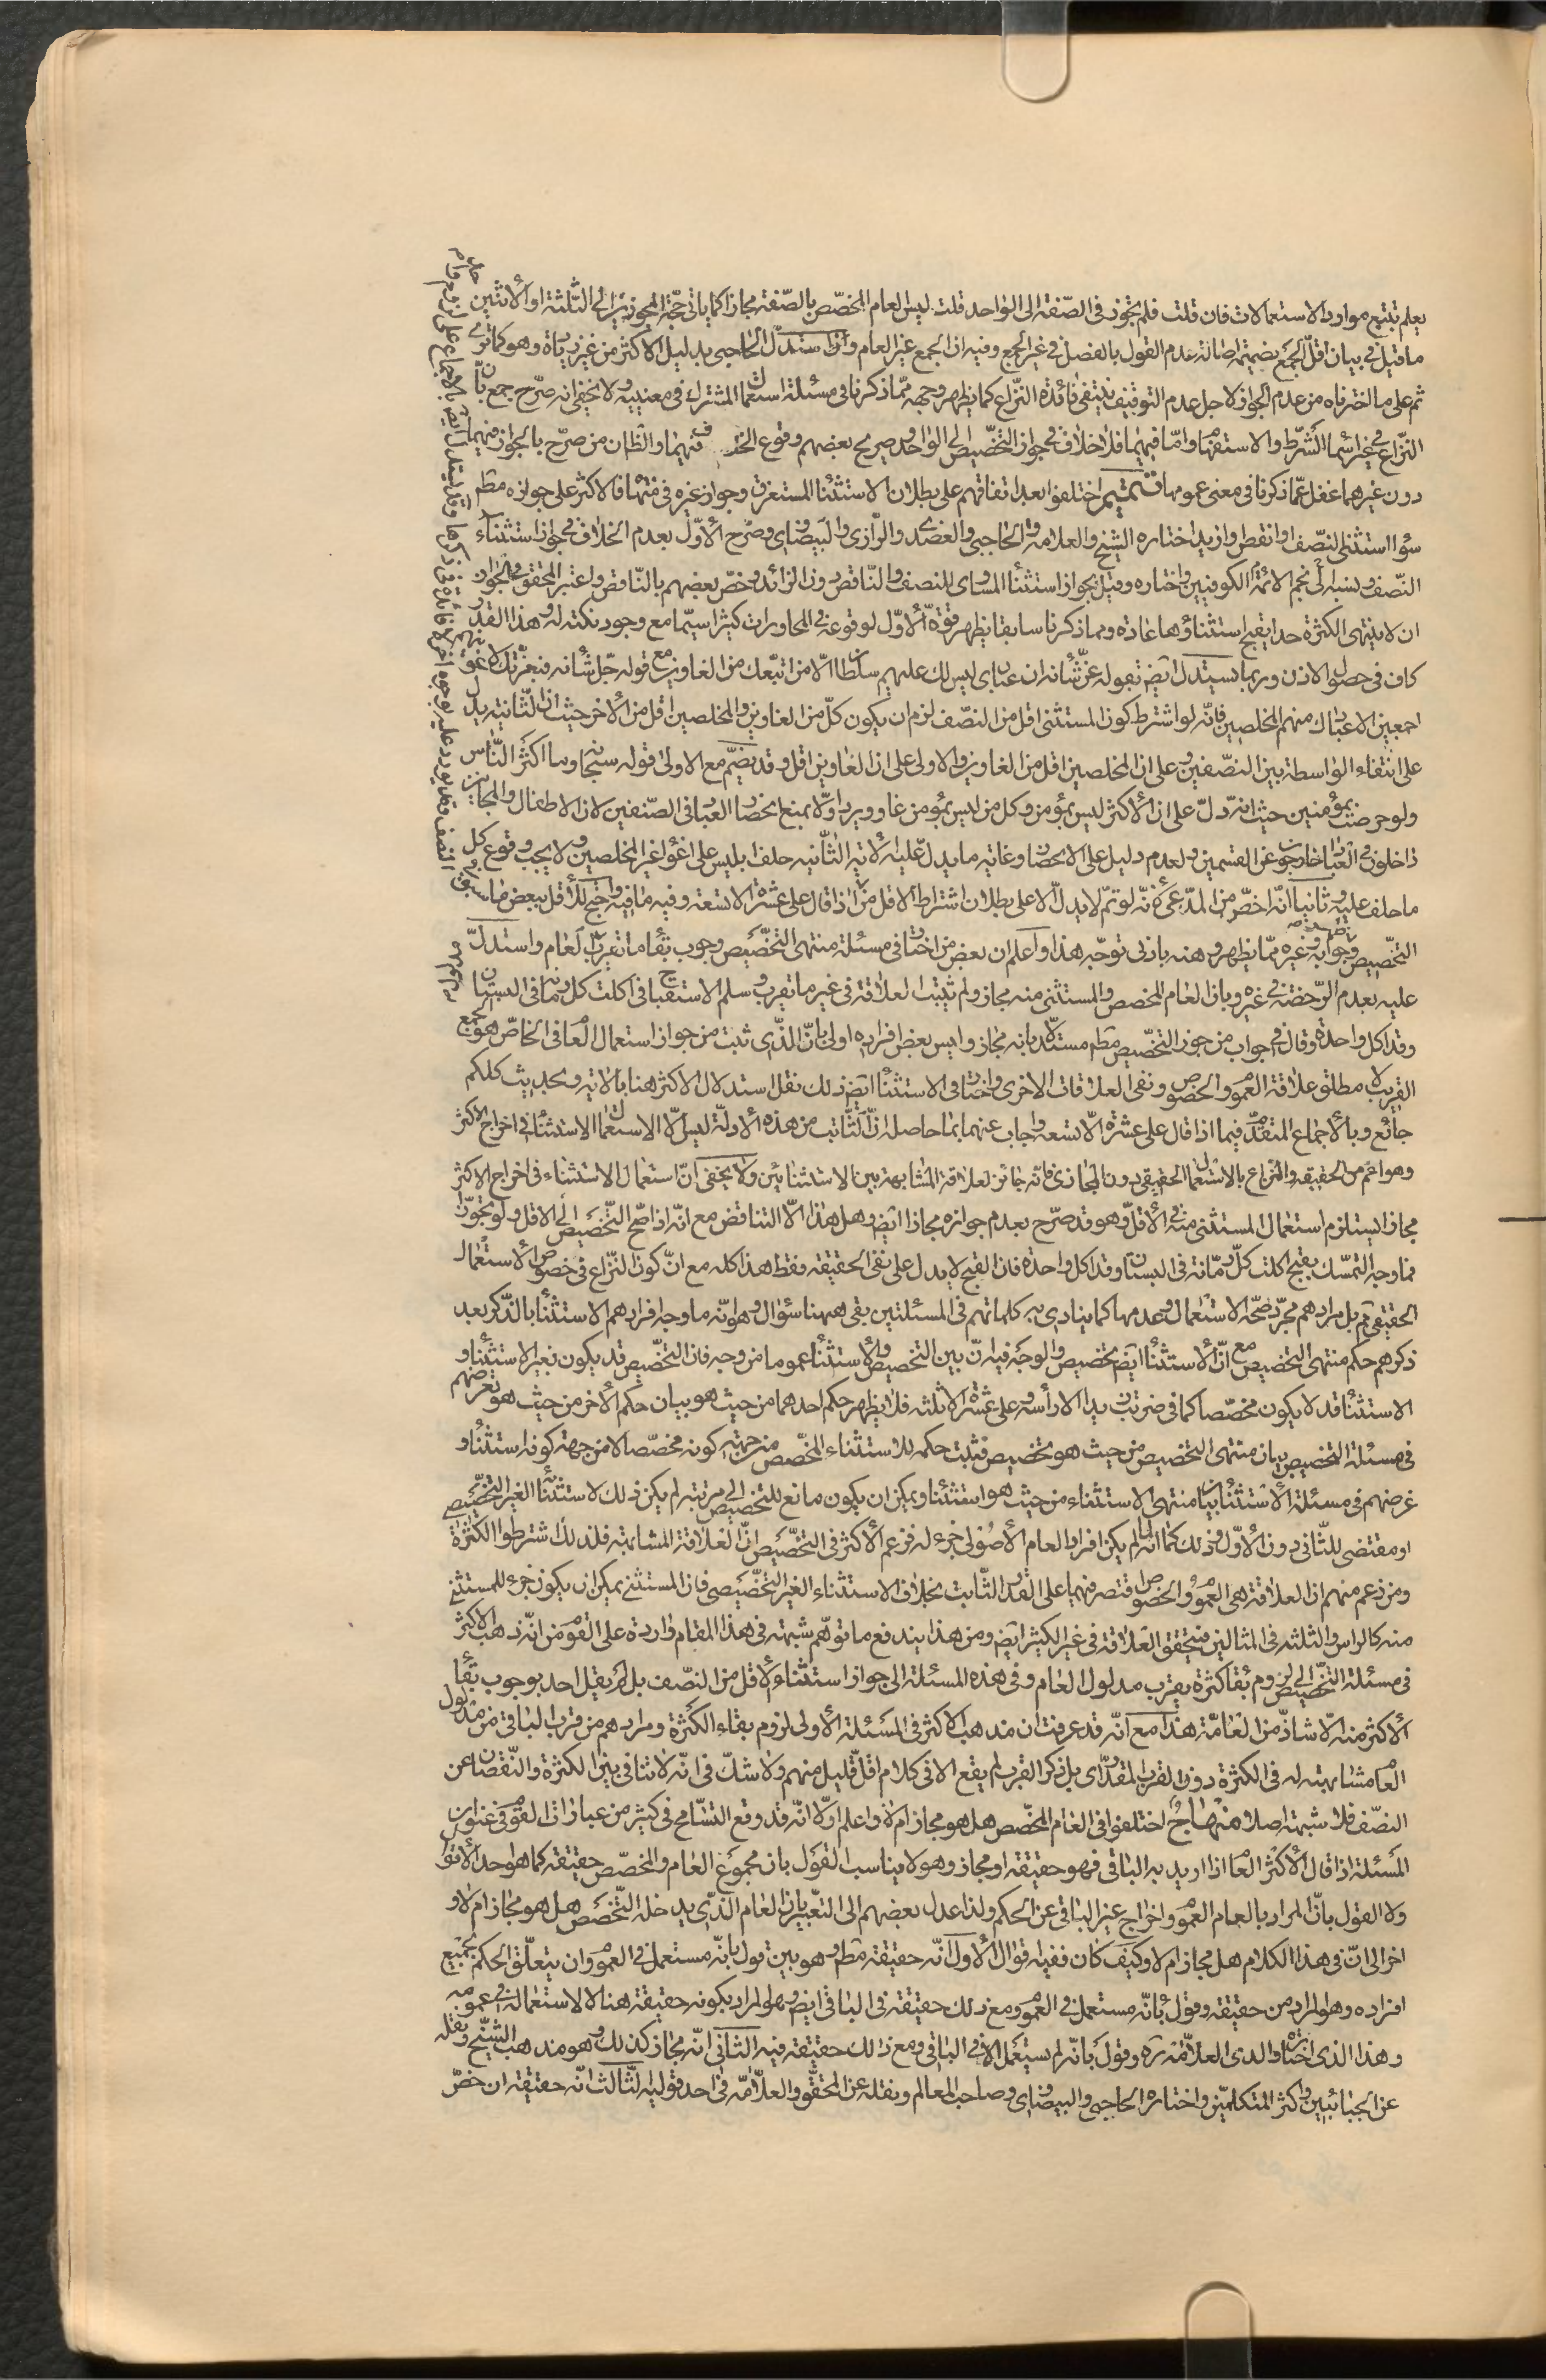 يعلم بتتبع موارد الاستعمالات فان قلت فلم يجوز فى الصّفة الى الواحد قلت ليس العام المخصّص بالصّفة مجازا كما ياتى حجّة المجوز الى الثّلثة او الاثنين
ما قيل فى بيان اقلّ الجمع بضميمة اصالة عدم القول بالفصل فى غير الجمع وفيه ان الجمع غير العام واذا استدلّ الحاجبى بدليل الاكثر من غير زيادة وهو كما ترى
ثم على ما اخترناه من عدم الجواز لاجل عدم التوقيف ينتفى فائدة النّزاع كما يظهر وجهه ممّا ذكرنا فى مسئلة استعمال المشترك فى معنييه ولا يخفى انه صرّح جمع بان
النّزاع فى غير اسماء الشّرط والاستفهام وامّا فيهما فلا خلاف فى جواز التخصيص الى الواحد وصريح بعضهم وقوع فيهما والظان من صرّح بالجواز فيهما
دون غيرهما غفل عمّا ذكرنا فى معنى عمومها تتميم اختلفوا بعد اتفاقهم على بطلان الاستثناء المستغرق وجواز غيره فى منتهاه فالاكثر على جوازه مطم
سواء استثنى النصّف او انقص او ازيد اختاره الشيخ والعلامة والحاجبى والعضدى والرّازى والبيضاوى وصرّح الاوّل بعدم الخلاف فى جواز استثناء
النّصف ونسبه الى نجم الائمّة الكوفيين واختاره وقيل بجواز استثناء المساوى للنصف والنّاقص دون الزائد وخصّ بعضهم بالنّاقص واعتبر المحقق فى الجواز
ان لا ينتهى الكثرة حدا يقبح استثناؤها عادة ومما ذكرنا سابقا يظهر قوّة الاوّل لوقوعه فى المحاورات كثيرا سيّما مع وجود نكتة له وهذا القدر
كاف فى حصول الاذن وربما يستدل ايض بقوله عزّ شأنه ان عبادى ليس لك عليهم سلطان الّا من اتبّعك من الغاوين مع قوله جلّ شأنه فبعزّتك لاغوينهم
اجمعين الا عبادك منهم المخلصين فانّه لو اشترط كون المستثنى اقل من النصّف لزم ان يكون كلّ من الغاوين والمخلصين اقل من الاخر حيث ان الثّانية يدل
على انتفاء الواسطة بين الصّنفين وعلى ان المخلصين اقل من الغاوين والاولى على ان الغاوين اقل وقد يضمّ مع الاولى قوله سبحانه وما اكثر النّاس
ولو حرصت بمؤمنين حيث انه دلّ على ان الاكثر ليس بمؤمن وكل من ليس بمؤمن غاو ويرد اوّلا بمنع انحصار العباد فى الصّنفين لان الاطفال والمجانين
داخلون فى العباد خارجون عن القسمين ولعدم دليل على الانحصار وغاية ما يدلّ عليه الاية الثّانية حلف ابليس على اغواء غير المخلصين ولا يجب وقوع كل
ما حلف عليه وثانيا انّه اخصّ من المدّعى فانّه لو تمّ لا يدلّ الا على بطلان اشتراط الاقل من اذا قال على عشرة الا تسعة وفيه ما فيه واحتج للاقل ببعض ما سبق
التخّصيص وجوابه وغيره ممّا يظهر وهنه بادنى توجّه هذا واعلم ان بعض من اختار فى مسئلة منتهى التخّصيص وجوب بقاء ما تقرب العام واستدلّ
عليه بعدم الرّخصة فى غيره وبان العام المخصص والمستثنى منه مجاز ولم تثبت العلاقة فى غير ما تقرب وسلم الاستقباح فى اكلت كل رمانة فى البستان
وقد اكل واحدة وقال فى جواب من جوز التخّصيص مطم مستدلّا بانه مجاز وليس بعض افراده اولى بانّ الذّى ثبت من جواز استعمال العام فى الخاصّ هو الجمع
القريب لا مطلق علاقة العموم والخصوص ونفى العلاقات الاخرى واختار فى الاستثناء ايض ذلك نقل استدلال الاكثر هنا بالاية وبحديث كلكم
جائع وبالاجماع المتقدّم فيما اذا قال على عشرة الّا تسعة واجاب عنهما بما حاصله انّ الثّابت من هذه الادلّة ليس الّا الاستعمال الاستثناء فى اخراج الاكثر
وهو اعم من الحقيقة والنّزاع بالاستعمال الحقيقى دون المجازى فانّه جائز لعلاقة المشابهة بين الاستثنائين ولا يخفى انّ استعمال الاستثناء فى اخراج الاكثر
مجازا يستلزم استعمال المستثنى منه فى الاقلّ وهو قد صرّح بعدم جوازه مجازا ايض وهل هذا الّا التناقض مع انّه اذا صّح التخّصيص الى الاقل ولو تجوّزا
فما وجه التمسّك بقبح اكلت كلّ رمّانة فى البستان وقد اكل واحدة فان القبح لا يدل على نفى الحقيقة فقط هذا كله مع انّ كون النّزاع فى خصوص الاستعمال
الحقيقى ثم بل مرادهم مجرّد صحّة الاستعمال وعدمها كما ينادى به كلماتهم فى المسئلتين بقى ههنا سؤال وهو انّه ما وجه افرادهم الاستثناء بالذّكر بعد
ذكرهم حكم منتهى التخصيص مع انّ الاستثناء ايض تخصيص والوجه فيه انّ بين التخصيص والاستثناء عموما من وجه فان التخّصيص قد يكون بغير الاستثناء و
الاستثناء قد لا يكون مخصّصا كما فى ضربت زيدا الا رأسه وعلى عشرة الا ثلثه فلا يظهر حكم احدهما من حيث هو ببيان حكم الاخر من حيث هو تعرضهم
فى مسئلة التخصيص بيان منتهى التخصيص من حيث هو تخصيص فثبت حكمه للاستثناء المخّصص من جهة كونه مخصّصا لا من جهة كونه استثناء و
غرضهم فى مسئلة الاستثناء بيان منتهى الاستثناء من حيث هو استثناء ويمكن ان يكون مانع للتخصيص الى مرتبة لم يكن ذلك لاستثناء الغير التخّصيصى
او مقتضى للثّانى دون الاوّل وذلك كما انّه لم يكن افراد العام الاصُولى جزء له فزعم الاكثر فى التخّصيص انّ العلاقة المشابهة فلذلك اشترطوا الكثرة
ومن زعم منهم ان العلاقة هى العموم والخصوص اقتصر فيهما على القدر الثّابت بخلاف الاستثناء الغير التخّصيصى فان المستثنى يمكن ان يكون جزء للمستثنى
منه كالراس والثلثه فى المثالين فيتحقق العلاقة فى غير الكثير ايض ومن هذا يندفع ما توهّم شبهة فى هذا المقام واردة على القوم من انّه ذهب الاكثر
فى مسئلة التخّصيص الى لزوم بقاء كثرة يقرب مدلول العام وفى هذه المسئلة الى جواز استثناء الاقل من النصّف بل لم يقل احد بوجوب بقاء
الاكثر منه الّا شاذّ من العامّة هذا مع انّه قد عرفت ان مذهب الاكثر فى المسئلة الاولى لزوم بقاء الكثرة ومرادهم من قرب الباقى من مدلول
العام مشابهته له فى الكثرة دون القرب المقدّارى بل ذكر القرب لم يقع الا فى كلام اقلّ قليل منهم ولا شكّ فى انّه لا تنافى بين الكثرة والنّقصان عن
النصّف فلا شبهة اصلا منهاج اختلفوا فى العام المخصّص هل هو مجاز ام لا واعلم اوّلا انّه قد وقع التسّامح فى كثير من عبارات القوم فى عنوان
المسئلة اذا قال الاكثر العام اذا اريد به الباقى فهو حقيقة او مجاز وهو لا يناسب القول بان مجموع العام والمخصّص حقيقة كما هو احد الاقوال
ولا القول بانّ المراد بالعام العموم واخراج غير الباقى عن الحكم ولذا عدل بعضهم الى التعّبير بان العام الذّى يدخله التخّصيص هل هو مجاز ام لا و
اخر الى انّ فى هذا الكلام هل مجاز ام لا وكيف كان ففيه اقوال الاول انّه حقيقة مطم وهو بين قول بانّه مستعمل فى العموم وان يتعلّق الحكم بجميع
افراده وهو المراد من حقيقة وقول بانّه مستعمل فى العموم ومع ذلك حقيقة فى الباقى ايض وهو المراد بكونه حقيقة هنا لا الاستعماله فى عمومه
وهذا الذى اختاره والدى العلاّمة ره وقول بانّه لم يستعمل الا فى الباقى ومع ذالك حقيقة فيه الثانى انّه مجاز كذلك وهو مذهب الشيّخ ونقله
عن الجبائيين واكثر المتكلمّين واختاره الحاجبى والبيضاوى وصاحب المعالم ونقله عن المحقق والعلاّمة فى احد قوليه الثّالث انّه حقيقة ان خصّ